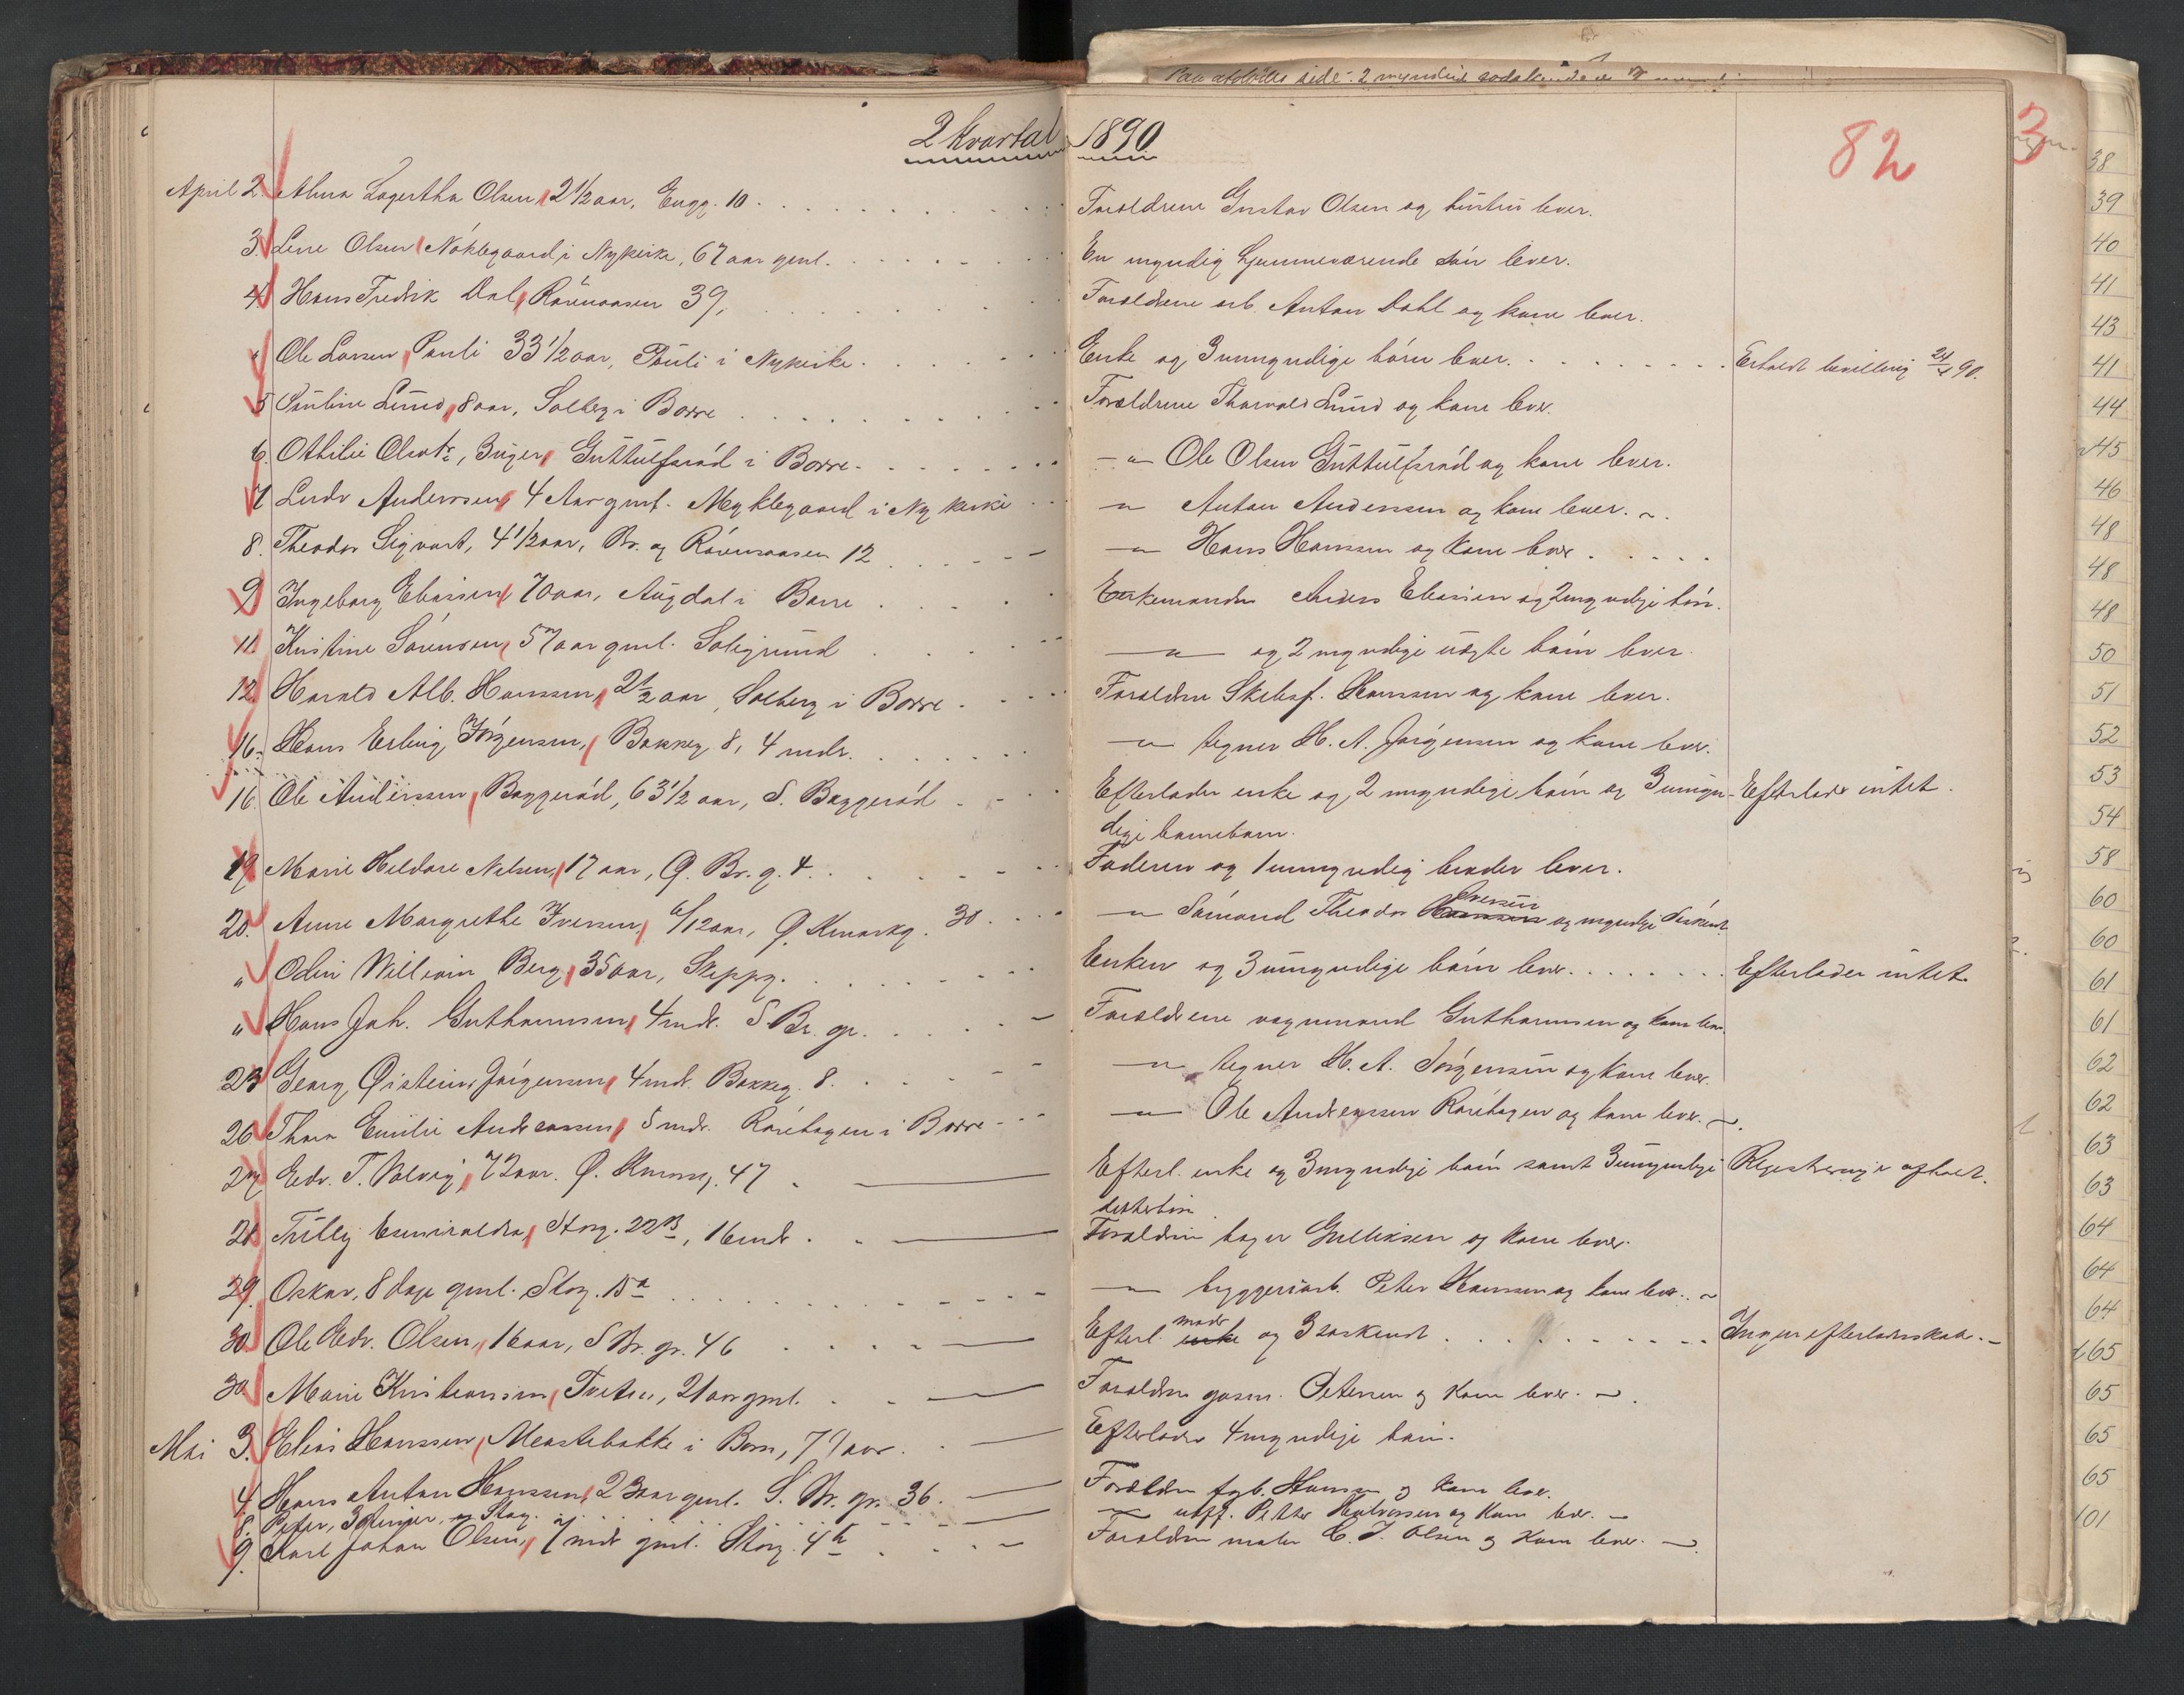 2 kvartal 1890
82
April 2. Alma Lagertha Olsen, 2 1/2 aar, Engg. 10. Forældrene Gustav Olsen og hustru lever.
3. Lene Olsen Nöklegaard i Nykirke, 67 aar gml. En myndig hjemmeværende sön lever.
4 Hans Fredrik Dal, Rörmaasen 39, Forældrene arb. Anton Dahl og kone lever.
" Ole Larsen Pauli 33 1/2 aar, Pauli i Nykirke. Enke og 3 umyndige börn lever. Erholdt bevilling 24/4 90.
5 Pauline Lund, 8 aar, Solberg i Borre Forældrene Thorvald Lund og kone lever.
6. Othilie Olsdtr, 3 uger, Guttulfsröd i Borre. - " - Ole Olsen Guttulfsröd og kone lever.
7 Ludv Anderssen, 4 Aar gml. Nyklegaard i Nykirke " Anton Anderssen og kone lever.
8. Theodor Sigvart, 4 1/2 aar, Br. og Rörmaasen 12 " Hans Hanssen og kone lever
9 Ingeborg Eliassen, 70 aar, Augdal i Borre Enkemanden Anders Eliassen og 2 myndige börn.
11. Kristine Sörensen, 57 aar gml. Soligrund " og 2 myndige uægte börn lever.
12. Harald Alb. Hanssen, 2 1/2 aar, Solberg i Borre. Forældrene Skibsf. Hanssen og kone lever.
16. Hans Erling Jörgensen, Bakkeg. 8, 4 mdr. " tegner H. A. Jörgensen og kone lever.
16. Ole Anderssen, Baggeröd, 63 1/2 aar, S. Baggeröd Efterlader enke og 2 myndige börn og 3 umyn- Efterlader intet.
dige barnebarn.
19 Marie Heldore Nelsen, 17 aar, Q. Br. g. 4. Faderen og 1 umyndig broder lever.
20. Anne Margrethe Iversen, 6/12 aar, Q. Kmarkg. 30. " Sömand Theodor Iversen og myndige söskend.
" Odin William Berg, 35 aar, Skippg. Enken og 3 umyndige börn lever. Efterlader intet.
" Hans Joh. Guthormsen, 4 mdr. S. Br. gr. Forældrene vognmand Guthormsen og kone lever.
23 Georg Øistein Jörgensen, 4 mdr. Bakkeg. 8. " tegner H. A. Jörgensen og kone lever.
26 Thora Emilie Andreassen, 5 mdr. Rörehagen i Borre " Ole Andreassen Rörehagen og kone lever.
27 Edv. T. Solvig, 72 aar. Q. Kmarkg. 47 Efterl. enke og 3 myndige börn samt 3 umyndige Registrering afholdt.
datterbörn
28 Tilly Esmiralda, Storg. 22 B, 16 mdr. Forældrene bager Gulliksen og kone lever.
29. Oskar, 8 dage gml. Storg. 15 a " bryggeriarb. Peter Hanssen og kone lever.
30. Ole Edv. Olsen, 16 aar, S Br. gr. 46 Efterl. enke moder og 3 söskende. Ingen efterladenskab.
30 Marie Kristiansen, Tveten, 21 aar gml. Forældrene gaarm. Petersen og kone lever.
Mai 3. Elias Hanssen, Meastebakke i Borre, 79 aar. Efterlader 4 myndige börn.
4. Hans Anton Hanssen, 23 aar gml. S. Br. gr. 36. Forældrene fgb. Hansen og kone lever.
8. Peter, 3 timer, Storg. " Petter Halvorsen og kone lever.
9. Karl Johan Olsen, 7 mdr gml. Storg. 4 b Forældrene maler C. J. Olsen og kone lever.
3
38
39
40
41
43
41
44
45
46
48
48
48
50
51
52
53
54
58
60
60
61
61
62
62
63
63
64
64
64
65
65
65
65
101